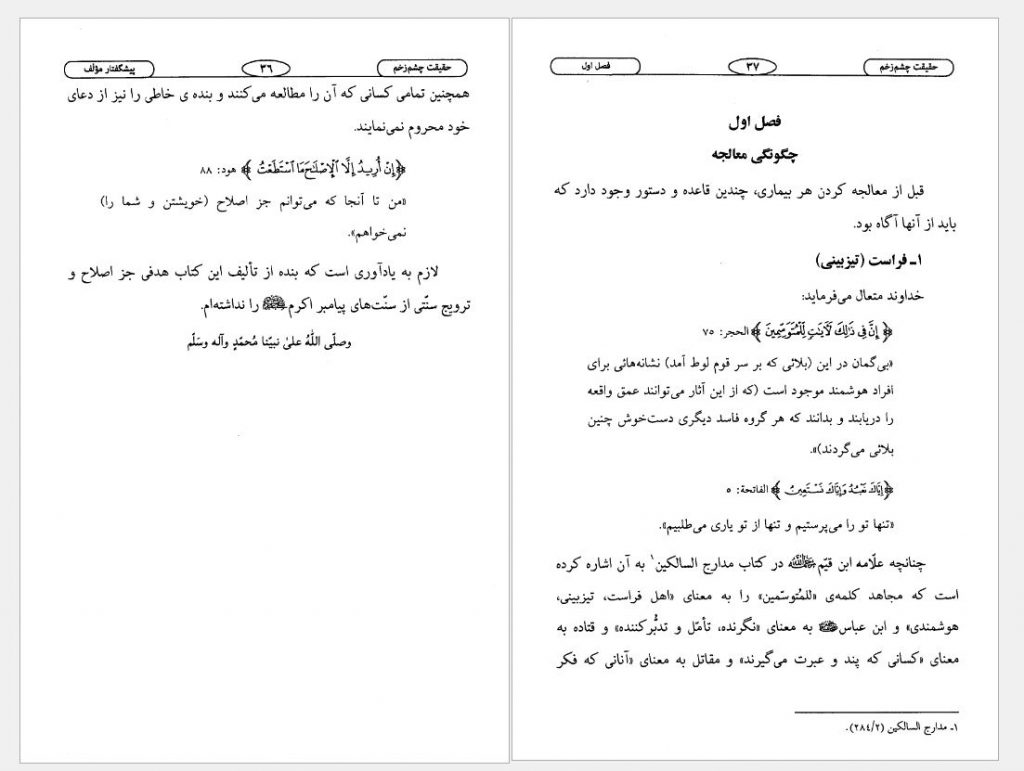 حقیقت چشم‌زخم ۳۶ پیشگفتار مؤلف
همچنین تمامی کسانی که آن را مطالعه می‌کنند و بنده ی خاطی را نیز از دعای
خود محروم نمی‌نمایند.
﴿إِنْ أُرِيدُ إِلَّا ٱلْإِصْلَٰحَ مَا ٱسْتَطَعْتُ﴾ هود: ۸۸
«من تا آنجا که می‌توانم جز اصلاح (خویشتن و شما را)
نمی‌خواهم».
لازم به یادآوری است که بنده از تألیف این کتاب هدفی جز اصلاح و
ترویج سنّتی از سنّت‌های پیامبر اکرم ﷺ را نداشته‌ام.
وصلّی اللّٰهُ علیٰ نبیّنا مُحمّدٍ وآله وسَلّم
حقیقت چشم‌زخم ۳۷ فصل اول
فصل اول
چگونگی معالجه
قبل از معالجه کردن هر بیماری، چندین قاعده و دستور وجود دارد که
باید از آنها آگاه بود.
۱ـ فراست (تیزبینی)
خداوند متعال می‌فرماید:
﴿إِنَّ فِي ذَٰلِكَ لَآيَٰتٍ لِّلْمُتَوَسِّمِينَ﴾ الحجر: ۷۵
«بی‌گمان در این (بلائی که بر سر قوم لوط آمد) نشانه‌هائی برای
افراد هوشمند موجود است (که از این آثار می‌توانند عمق واقعه
را دریابند و بدانند که هر گروه فاسد دیگری دست‌خوش چنین
بلائی می‌گردند)».
﴿إِيَّاكَ نَعْبُدُ وَإِيَّاكَ نَسْتَعِينُ﴾ الفاتحة: ۵
«تنها تو را می‌پرستیم و تنها از تو یاری می‌طلبیم».
چنانچه علّامه ابن قیّم در کتاب مدارج السالکین۱ به آن اشاره کرده
است که مجاهد کلمه‌ی «للمُتوسّمین» را به معنای «اهل فراست، تیزبینی،
هوشمندی» و ابن عباس به معنای «نگرنده، تأمّل و تدبُّرکننده» و قتاده به
معنای «کسانی که پند و عبرت می‌گیرند» و مقاتل به معنای «آنانی که فکر
۱ـ مدارج السالکین (۲۸۴/۲).